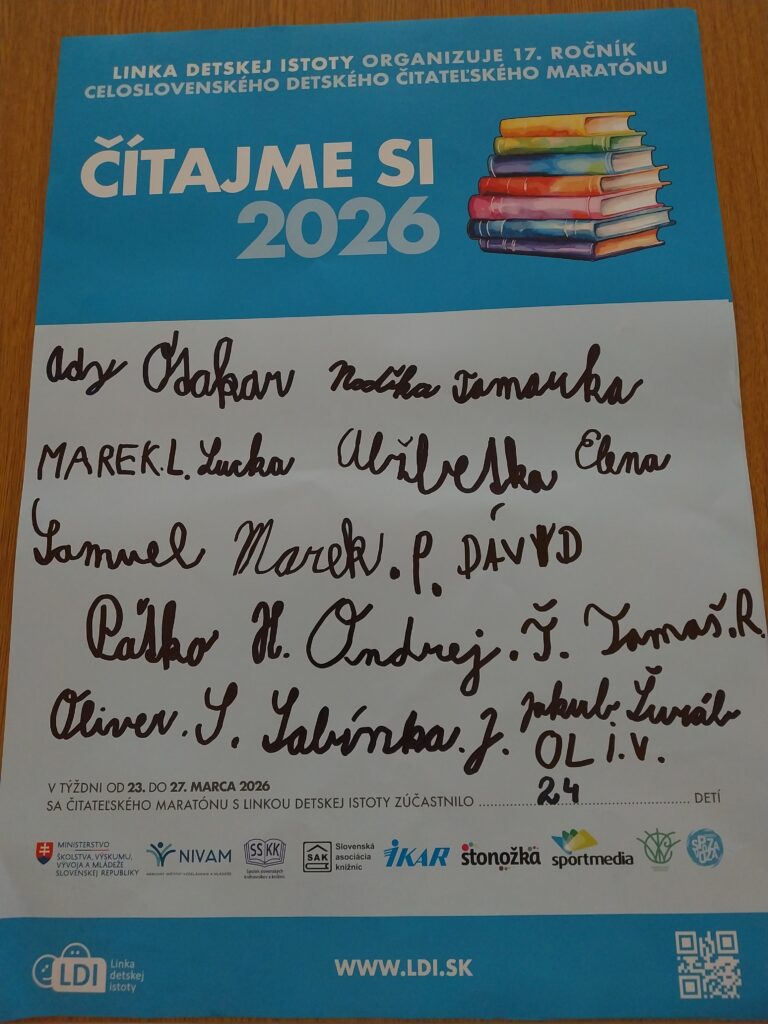 LINKA DETSKEJ ISTOTY ORGANIZUJE 17. ROČNÍK
CELOSLOVENSKÉHO DETSKÉHO ČITATEĽSKÉHO MARATÓNU
ČÍTAJME SI
2026
Ady Osakar Tamarka
MAREK.L. Lucka Elena
Samuel Marek.P. DÁVYD
Paťko H. Ondrej.Š. Tomáš.R.
Oliver.S. Sabínka.J. Jakub.
OLI.V.
V TÝŽDNI OD 23. DO 27. MARCA 2026
SA ČITATEĽSKÉHO MARATÓNU S LINKOU DETSKEJ ISTOTY ZÚČASTNILO 24 DETÍ
MINISTERSTVO
ŠKOLSTVA, VÝSKUMU,
VÝVOJA A MLÁDEŽE
SLOVENSKEJ REPUBLIKY
NIVAM
NÁRODNÝ INŠTITÚT VZDELÁVANIA A MLÁDEŽE
SSKK
Spolok slovenských
knihovníkov a knižníc
SAK
Slovenská
asociácia
knižníc
IKAR
stonožka
sportmedia
LDI
Linka
detskej
istoty
WWW.LDI.SK